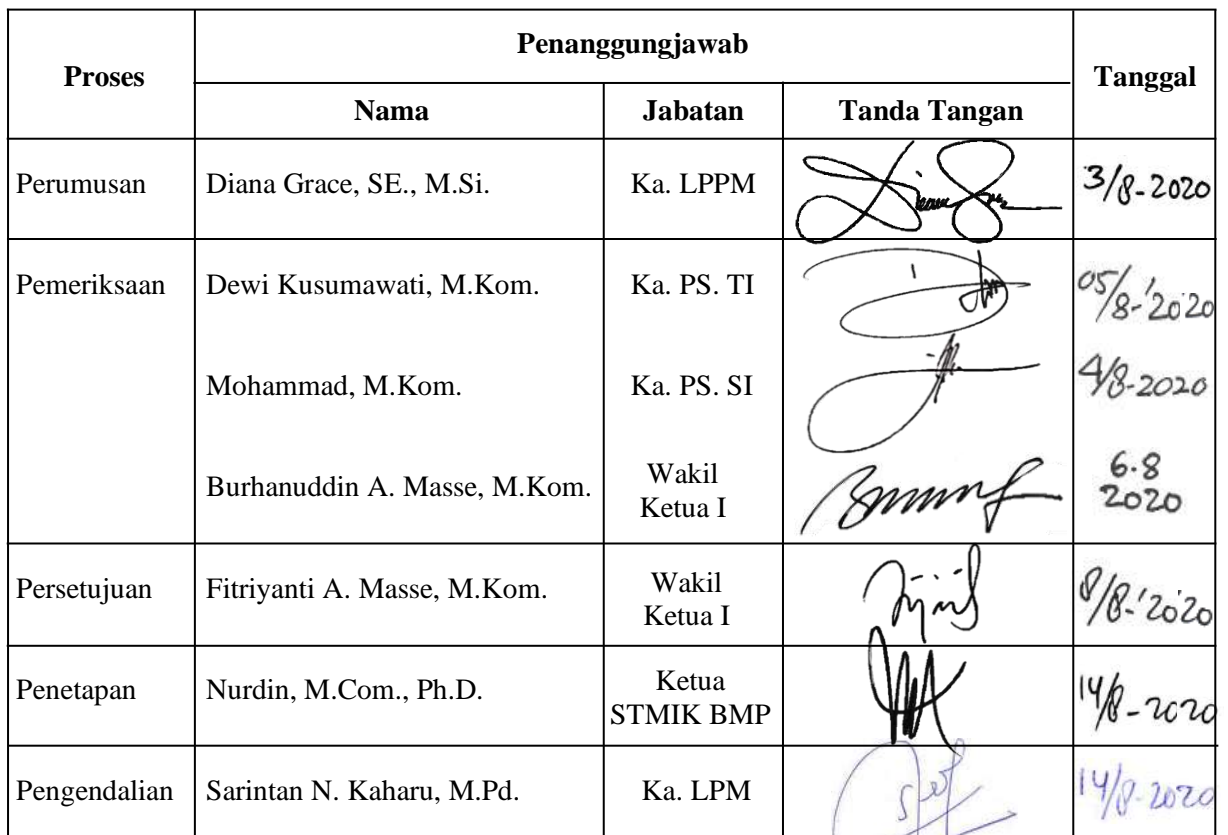 Proses
Penanggungjawab
Tanggal
Nama
Jabatan
Tanda Tangan
Perumusan
Diana Grace, SE., M.Si.
Ka. LPPM
3/8-2020
Pemeriksaan
Dewi Kusumawati, M.Kom.
Ka. PS. TI
05/8-'2020
Mohammad, M.Kom.
Ka. PS. SI
4/8-2020
Burhanuddin A. Masse, M.Kom.
Wakil
Ketua I
6.8
2020
Persetujuan
Fitriyanti A. Masse, M.Kom.
Wakil
Ketua I
8/8-'2020
Penetapan
Nurdin, M.Com., Ph.D.
Ketua
STMIK BMP
14/8-2020
Pengendalian
Sarintan N. Kaharu, M.Pd.
Ka. LPM
14/8-2020